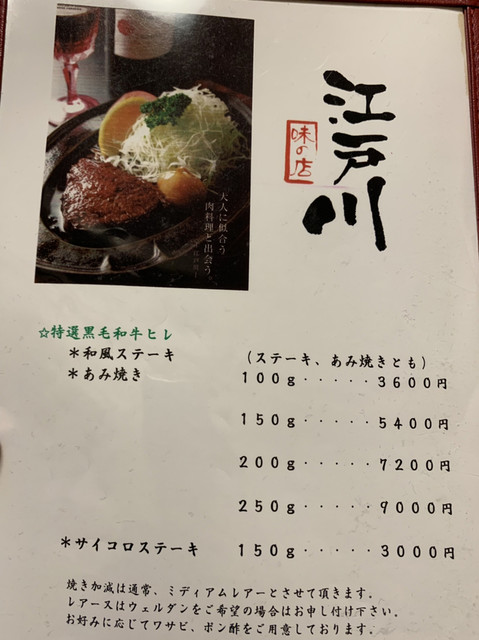 味の店
江戸川
大人に似合う
肉料理と出会う
☆特選黒毛和牛ヒレ
＊和風ステーキ
＊あみ焼き
（ステーキ、あみ焼きとも）
１００ｇ・・・・・３６００円
１５０ｇ・・・・・５４００円
２００ｇ・・・・・７２００円
２５０ｇ・・・・・９０００円
＊サイコロステーキ　１５０ｇ・・・・・３０００円
焼き加減は通常、ミディアムレアーとさせて頂きます。
レアースはウェルダンをご希望の場合はお申し付け下さい。
お好みに応じてワサビ、ポン酢をご用意しております。